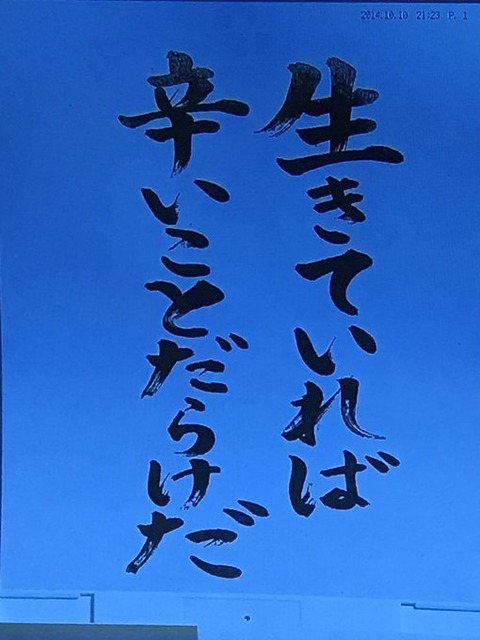 2014.10.10 21:23 P. 1
生きていれば
辛いことだらけだ